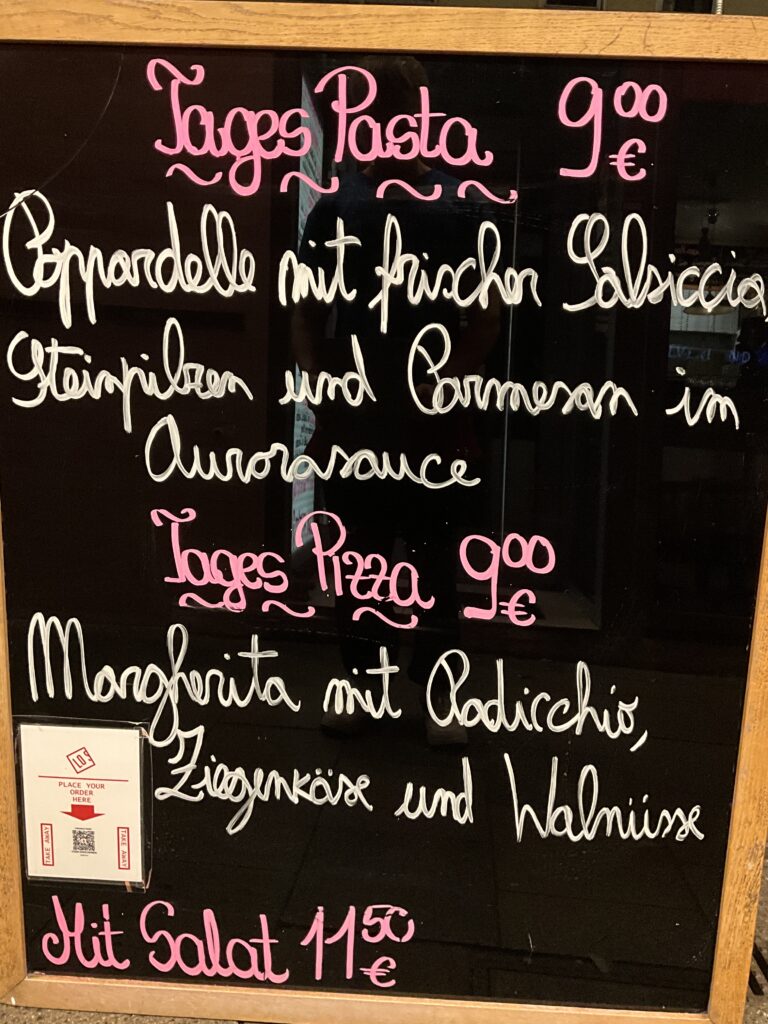 Tages Pasta 9⁰⁰ €
Pappardelle mit frischer Salsiccia,
Steinpilzen und Parmesan im
Aurorasauce
Tages Pizza 9⁰⁰ €
Margherita mit Radicchio,
Ziegenkäse und Walnüsse
PLACE YOUR
ORDER
HERE
TAKE AWAY
TAKE AWAY
Mit Salat 11⁵⁰ €